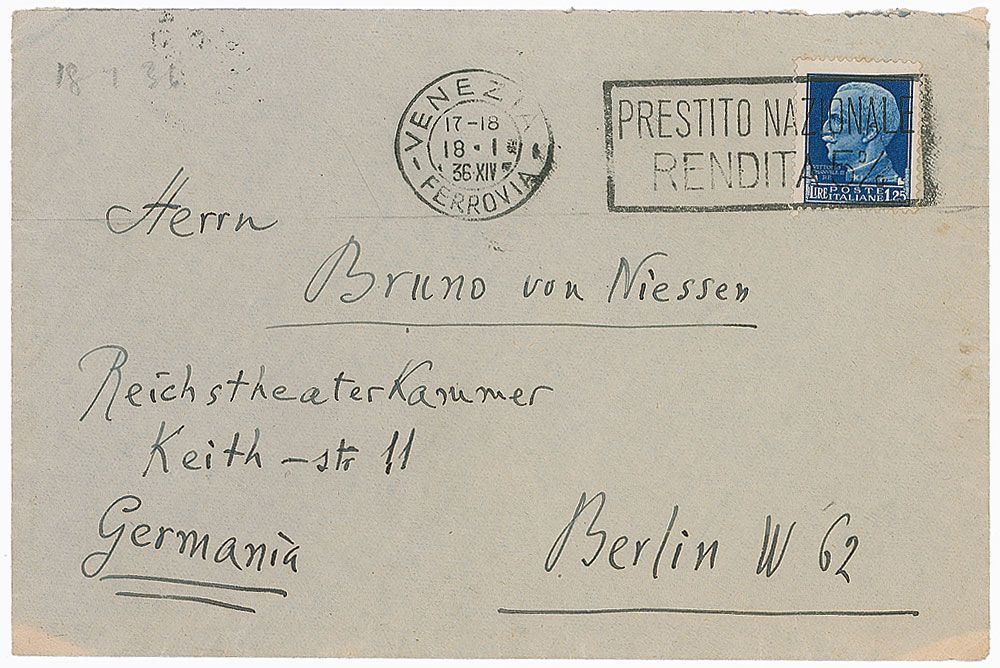 18 1 36
VENEZIA
17-18
18·1
36·XIV
FERROVIA
PRESTITO NAZIONALE
RENDITA 5%
VITTORIO
EMANVELE III
RE
LIRE POSTE ITALIANE 1.25
Herrn
Bruno von Niessen
Reichstheaterkammer
Keith-str 11
Germania
Berlin W 62